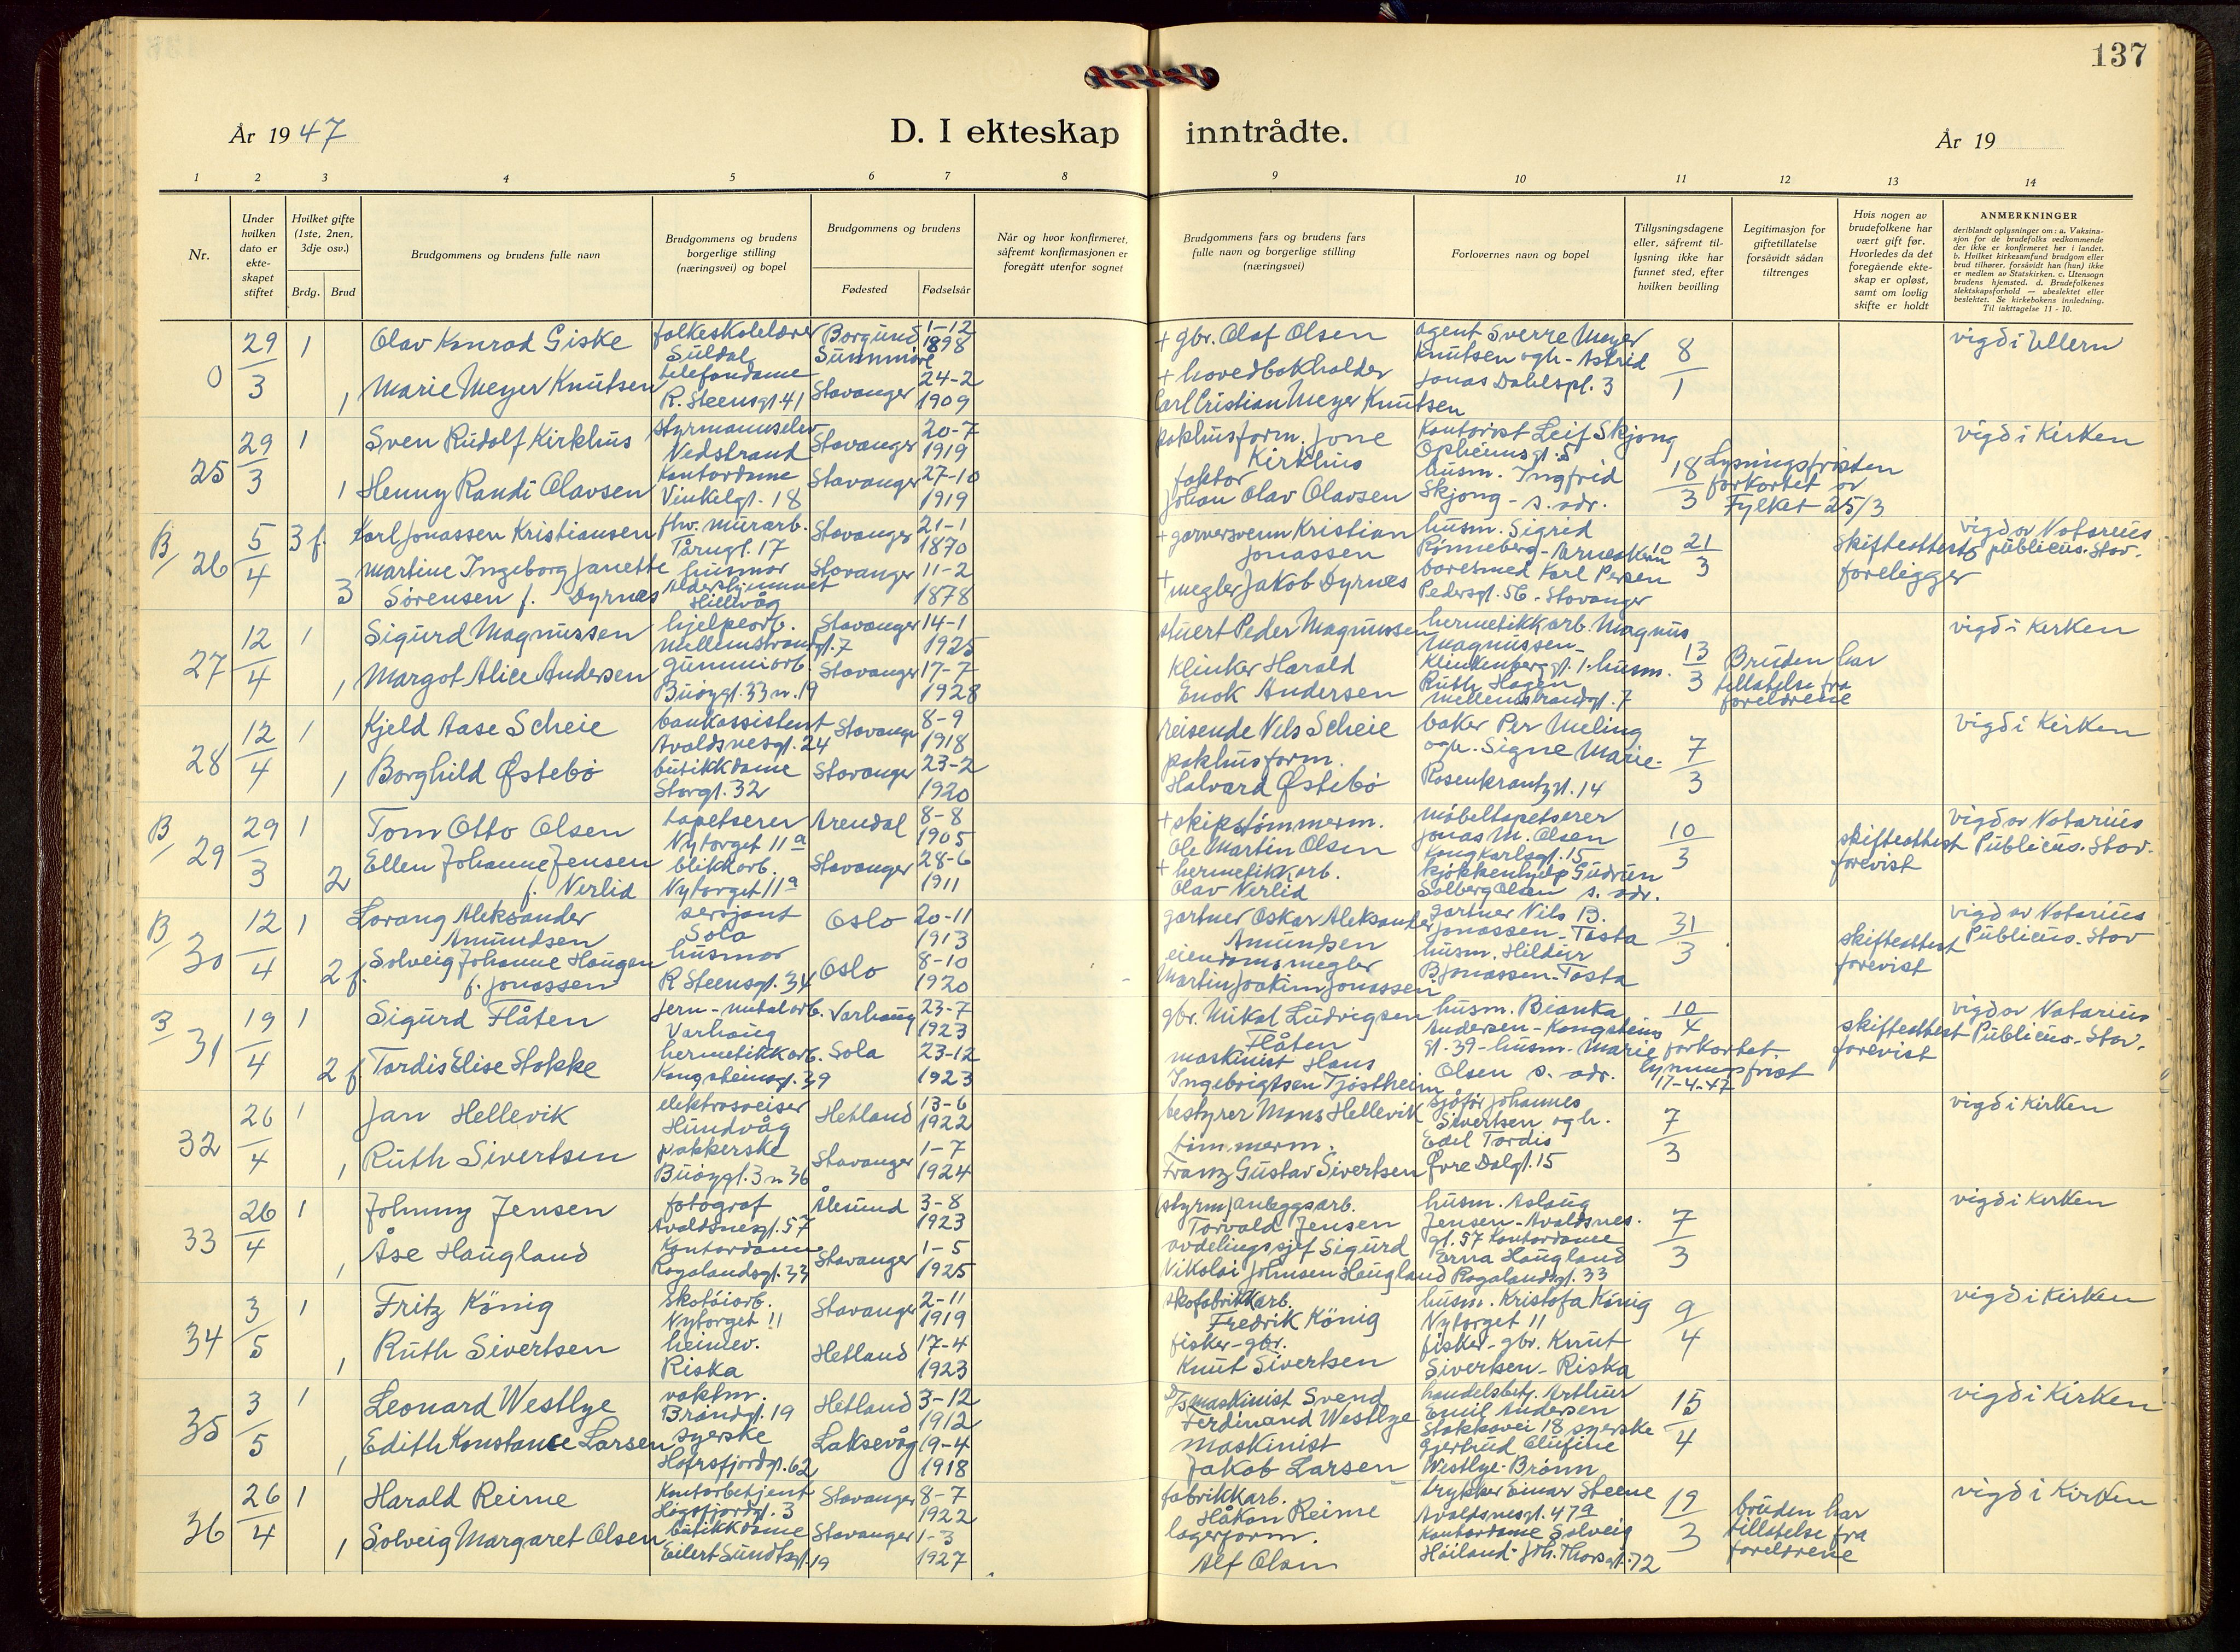 137
År 1947
D. I ekteskap inntrådte.
År 19
1 2 3 4 5 6 7 8 9 10 11 12 13 14
Nr.
Under hvilken dato er ekte-skapet stiftet
Hvilket gifte (1ste, 2nen, 3dje osv.)
Brdg. Brud
Brudgommens og brudens fulle navn
Brudgommens og brudens borgerlige stilling (næringsvei) og bopel
Brudgommens og brudens
Fødested Fødselsår
Når og hvor konfirmeret, såfremt konfirmasjonen er foregått utenfor sognet
Brudgommens fars og brudens fars fulle navn og borgerlige stilling (næringsvei)
Forlovernes navn og bopel
Tillysningsdagene eller, såfremt til-lysning ikke har funnet sted, efter hvilken bevilling
Legitimasjon for giftetillatelse forsåvidt sådan tiltrenges
Hvis nogen av brudefolkene har vært gift før. Hvorledes da det foregående ekte-skap er opløst, samt om lovlig skifte er holdt
ANMERKNINGER
deriblandt oplysninger om: a. Vaksina-sjon for de brudefolks vedkommende der ikke er konfirmeret her i landet. b. Hvilket kirkesamfund brudgom eller brud tilhører, forsåvidt han (hun) ikke er medlem av Statskirken. c. Utensogn brudens hjemsted. d. Brudefolkenes slektskapsforhold — ubeslektet eller beslektet. Se kirkebokens innledning. Til iakttagelse 11 - 10.
0 29/3 1 Olav Konrad Giske folkeskolelærer Suldal Borgund Sunnmöre 1-12 1898 + gbr. Olaf Olsen agent Sverre Meyer Knutsen ogh- Astrid Jonas Dahlspl. 3 8/1 vigd i Ullern
1 Marie Meyer Knutsen telefondame R. Steensgt. 41 Stavanger 24-2 1909 + hovedbokholder Carl Cristian Meyer Knutsen
25 29/3 1 Sven Rudolf Kirkhus styrmannselev Vedstrand Stavanger 20-7 1919 pakhusform. Jone Kirkhus Kontorist Leif Skjong Opheimsgt. 5 18/3 Lysningsfristen forkortet av Fylket 25/3 vigd i Kirken
1 Henny Randi Olavsen Kontordame Vinkelgt. 18 Stavanger 27-10 1919 faktor Johan Olav Olavsen husm. Ingfrid Skjong - s. adr.
B/ 26 5/4 3 f. Karl Jonassen Kristiansen fhv. murarb. Tårngt. 17 Stavanger 21-1 1870 + garversvenn Kristian Jonassen husm. Sigrid Rønneberg - 21/3 Skifteattester foreligger vigd av Notarius publicus. Stav.
3 Martine Ingeborg Janette Sørensen f. Dyrnes husmor Aldershjemmet Hillevåg Stavanger 11-2 1878 + megler Jakob Dyrnes Karl Persen Pedersgt. 56 - Stavanger
27 12/4 1 Sigurd Magnussen hjelpearb. Mellemstrandgt. 7 Stavanger 14-1 1925 stuert Peder Magnussen hermetikkarb. Magnus Magnussen - Klinkenberggt. 1. 13/3 Bruden har tillatelse fra foreldrene vigd i Kirken
1 Margot Alice Andersen gummiarb. Buøygt. 33 n. 19 Stavanger 17-7 1928 Klinker Harald Enok Andersen husm. Ruth Hagen Mellemstrandgt. 7
28 12/4 1 Kjeld Aase Scheie bankassistent Avaldsnesgt. 24 Stavanger 8-9 1918 reisende Nils Scheie baker Per Meling ogh. Signe Marie - Rosenkrantzgt. 14 7/3 vigd i Kirken
1 Borghild Østebö butikkdame Storgt. 32 Stavanger 23-2 1920 pakhusform. Halvard Østebö
B/ 29 29/3 1 Tom Otto Olsen tapetserer Nytorget 11a Arendal 8-8 1905 + skipstömmerm. Ole Martin Olsen möbeltapetserer Jonas M. Olsen Kong Karlsgt. 15 10/3 skifteattest forevist vigd av Notarius Publicus. Stav.
2 Ellen Johanne Jensen f. Nerlid blikkarb. Nytorget 11a Stavanger 28-6 1911 + hermetikkarb. Olav Nerlid kjökkenhjelp Gudrun Solberg Olsen s. adr.
B/ 30 12/4 1 Lorang Aleksander Amundsen sersjant Sola Oslo 20-11 1913 gartner Oskar Aleksander Amundsen gartner Nils B. Jonassen - Tasta 31/3 skifteattest forevist vigd av Notarius Publicus. Stav
2 f. Solveig Johanne Haugen f. Jonassen husmor R Steensgt. 34 Oslo 8-10 1920 eiendomsmegler Martin Joakim Jonassen husm. Hildur B Jonassen - Tasta
B 31 19/4 1 Sigurd Flåten jern-metalarb. Varhaug Varhaug 23-7 1923 gbr. Mikal Ludvigsen Flåten husm. Bianka Andersen - Kongsteinsgt. 39 - 10/4 forkortet lysningsfrist 17-4-47 skifteattest forevist vigd av Notarius Publicus. Stav.
2 f. Tordis Elise Stokke hermetikkarb. Kongsteinsgt. 39 Sola 23-12 1923 maskinist Hans Ingebrigtsen Tjöstheim husm. Marie Olsen s. adr.
32 26/4 1 Jan Hellevik elektrosveiser Hundvåg Hetland 13-6 1922 bestyrer Mons Hellevik sjåför Johannes Sivertsen ogh. Edel Tordis Øvre Dalgt. 15 7/3 vigd i Kirken
1 Ruth Sivertsen pakkerske Buøygt. 3 n 36 Stavanger 1-7 1924 timmerm. Franz Gustav Sivertsen
33 26/4 1 Johnny Jensen fotograf Avaldsnesgt. 57 Ålesund 3-8 1923 (styrm) anleggsarb. Torvald Jensen husm. Aslaug Jensen - Avaldsnes. gt. 57 7/3 vigd i Kirken
1 Åse Haugland Kontordame Rogalandsgt. 33 Stavanger 1-5 1925 avdelingssjef Sigurd Nikolai Johnsen Haugland Kontordame Erna Haugland Rogalandsgt. 33
34 3/5 1 Fritz König skotöiarb. Nytorget 11 Stavanger 2-11 1919 skofabrikkarb. Fredrik König husm. Kristofa König Nytorget 11 9/4 vigd i Kirken
1 Ruth Sivertsen heimev. Riska Hetland 17-4 1923 fisker-gbr. Knut Sivertsen fisker-gbr. Knut Sivertsen - Riska
35 3/5 1 Leonard Westlye vaktm. Bröndgt. 19 Hetland 3-12 1912 D/S maskinist Svend Ferdinand Westlye handelsbetj. Arthur Emil Andersen Stokkavei 18 15/4 vigd i Kirken
1 Edith Konstance Larsen syerske Hafrsfjordgt. 62 Laksevåg 19-4 1918 maskinist Jakob Larsen syerske Gjertrud Olufine Westlye -
36 26/4 1 Harald Reime Kontorbetjent Høgsfjordgt. 3 Stavanger 8-7 1922 fabrikkarb. Håkon Reime trykker Einar Steene Avaldsnesgt. 47a 19/3 bruden har tillatelse fra foreldrene vigd i Kirken
1 Solveig Margaret Olsen butikkdame Eilert Sundtsgt. 19 Stavanger 1-3 1927 lagerform. Alf Olsen kontordame Solveig Höiland - Joh. Thorsgt. 72